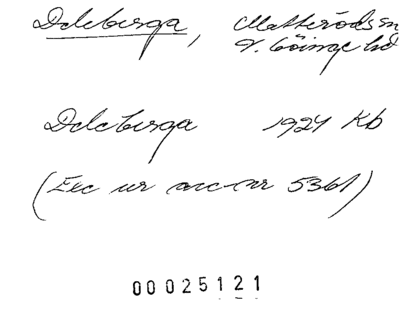 Ddeberga, Matteröds sn
V. Göinge hd
Ddeberga 1927 Kb
(Exc ur acc-nr 5361)
00025121